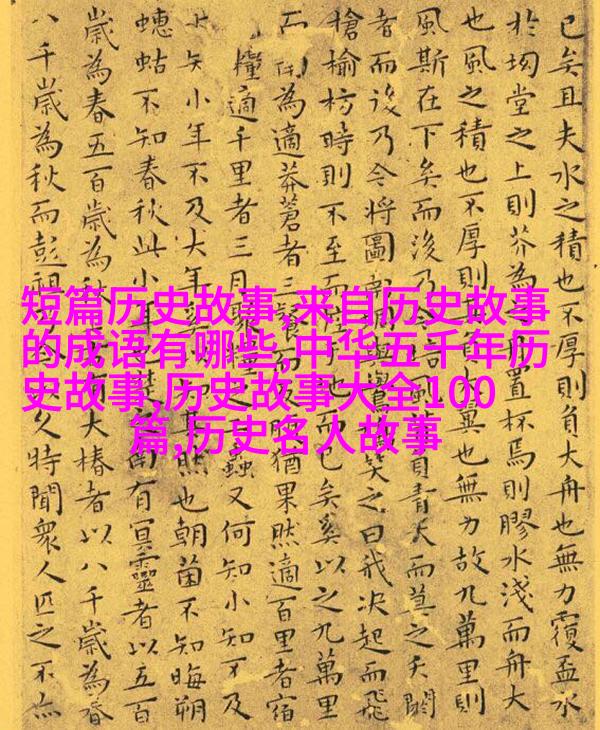 短篇历史故事,来自历史故事
的成语有哪些,中华五千年历
史故事,历史故事大全100
篇,历史名人故事
已矣且夫水之積也不厚則負大舟也無力覆盃水
於坳堂之上則芥為置杯焉則膠水淺而舟大
也風之積也不厚則其負大翼也無力故九萬里則
風斯在下矣而後乃今風負青天而莫之夭閼
者而後乃今將圖南與鸒笑之曰我决起而飛
槍榆枋時則不至而地而已矣奚以之九萬里
而為適莽蒼者三而反猶果然適百里者宿
糧適千里者三月聚糧之蟲又何知小知不及
大知小年不及大年奚其然也朝菌不知晦朔
蟪蛄不知春秋此小年楚南有冥靈者以五百
歲為春五百歲為秋有大椿者以八千歲為春
八千歲為秋而彭祖久特聞衆人匹之不亦